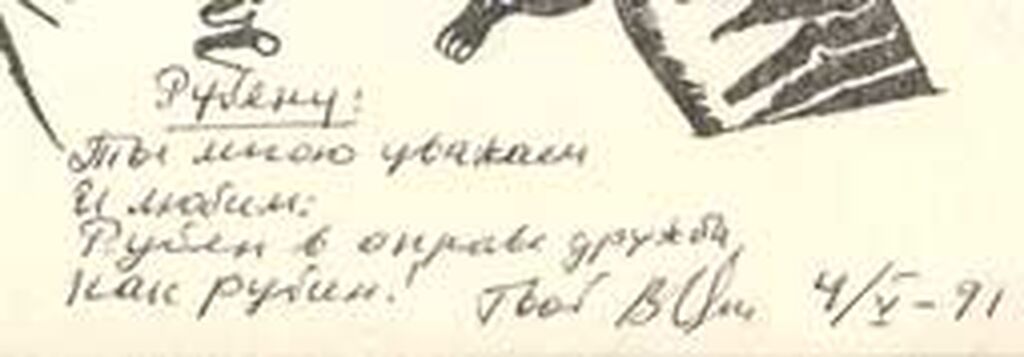 Рубену:
Ты мною уважаем
И любим:
Рубен в оправе дружбы,
Как рубин!
Твой 4/V-91